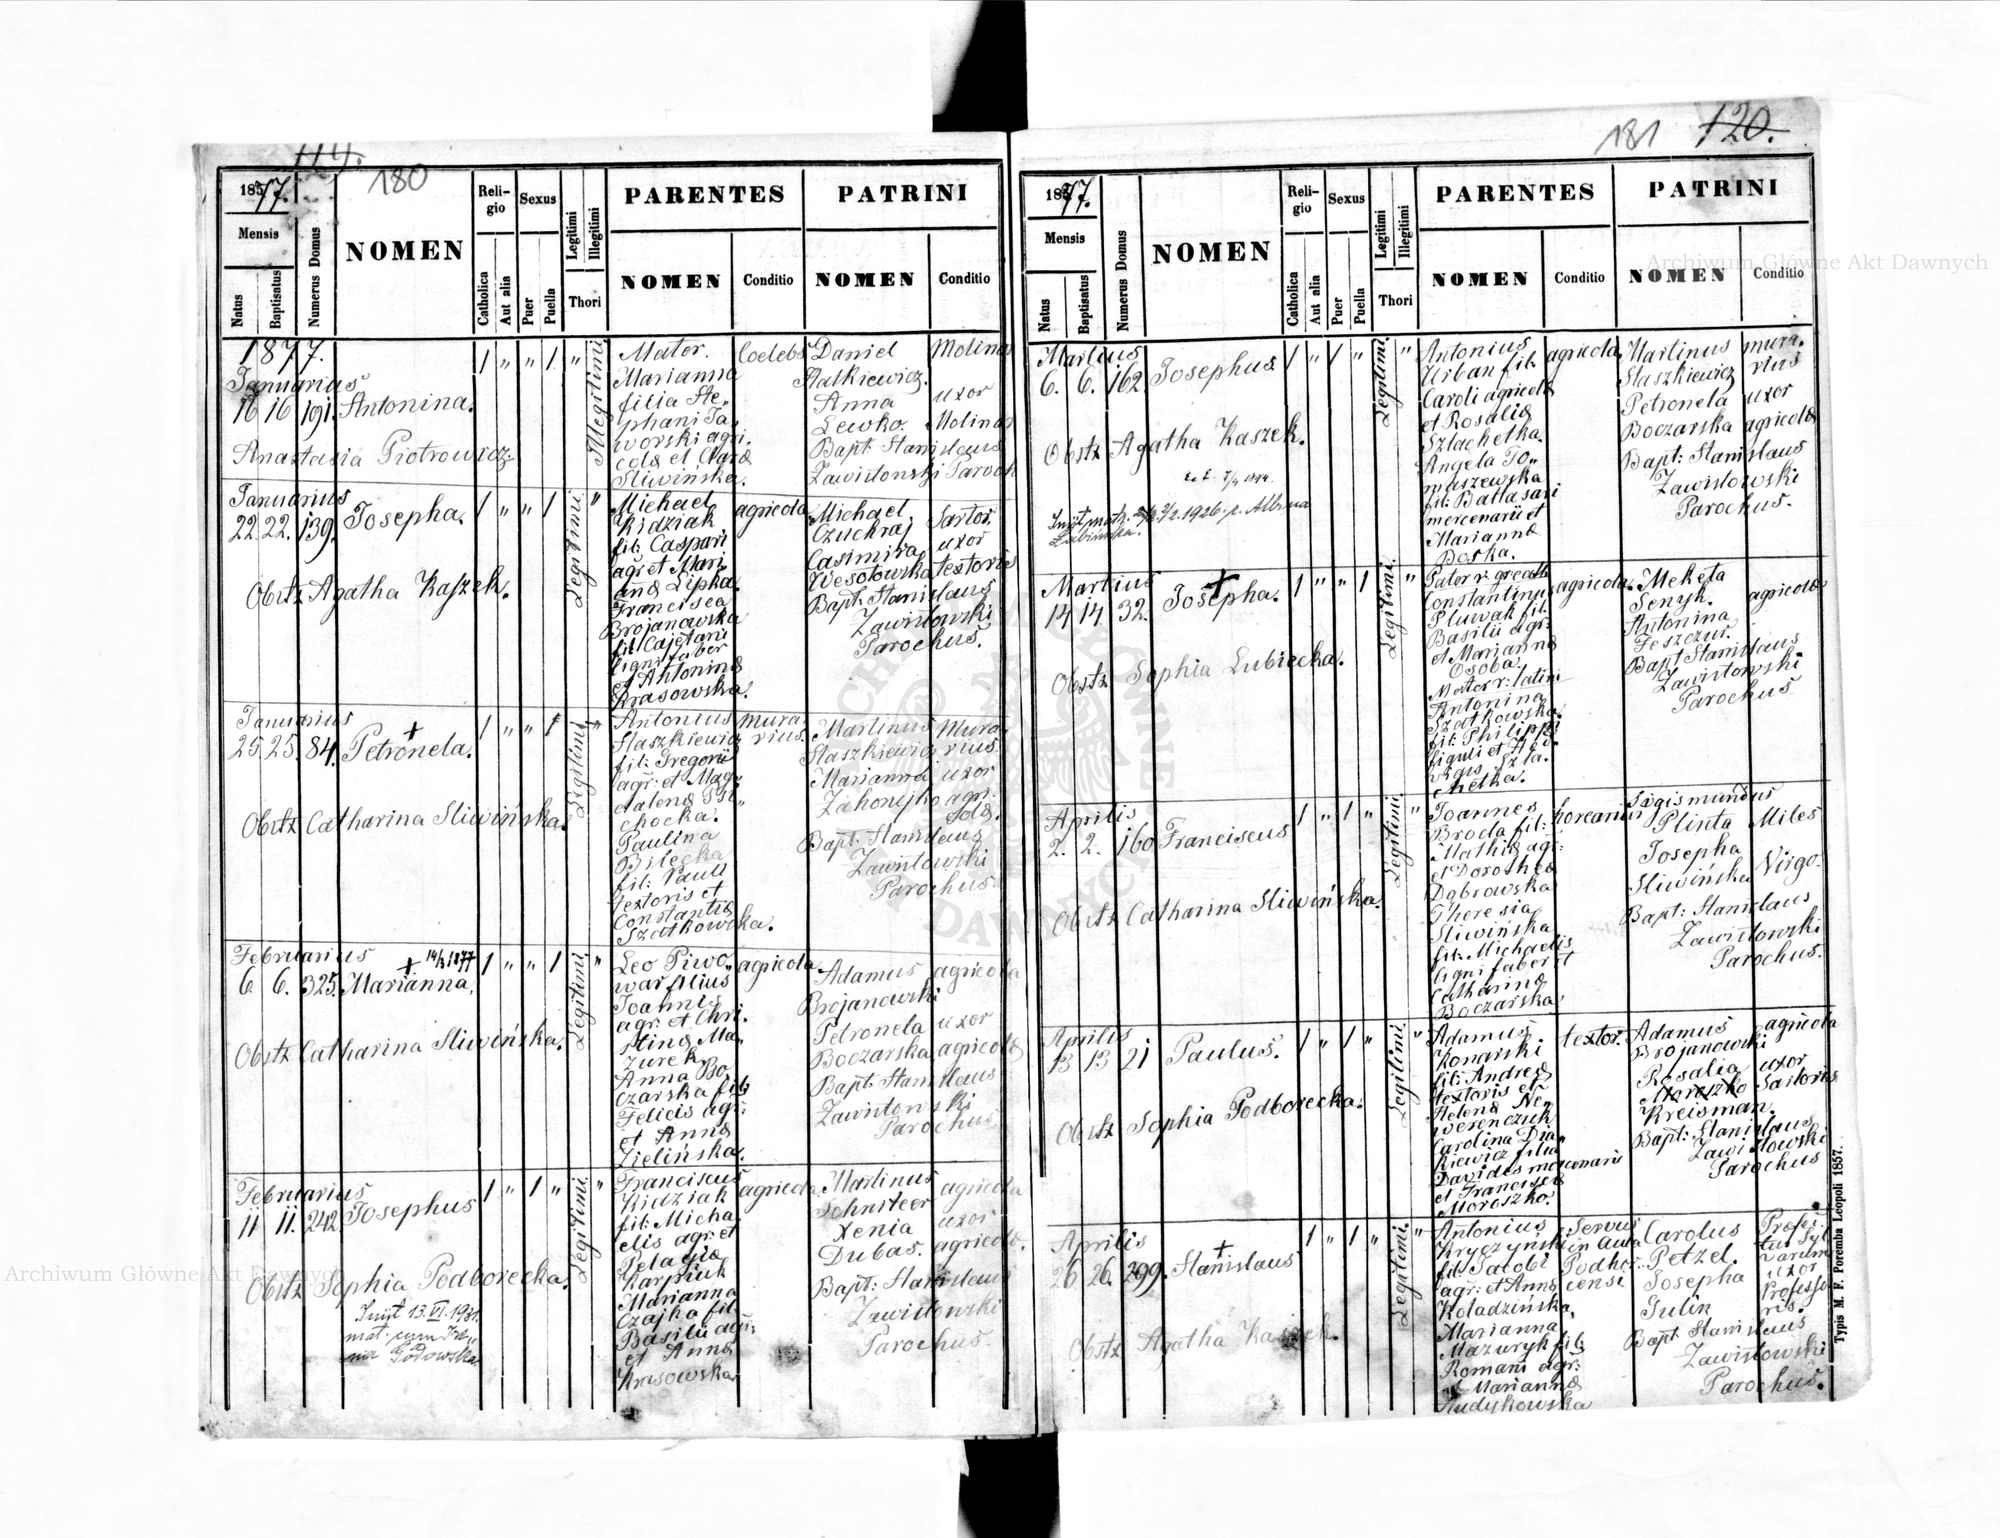 119.
180
1877.
Mensis
Natus
Baptisatus
Numerus Domus
NOMEN
Religio
Catholica
Aut alia
Sexus
Puer
Puella
Legitimi
Illegitimi
Thori
PARENTES
NOMEN
Conditio
PATRINI
NOMEN
Conditio
1877.
Januarius
16 16 191. Antonina.
Anastasia Piotrowicz.
1 " " 1 "
Illegitimi.
Mater.
Marianna
filia Ste-
phani Ja-
worski agri-
colæ et Claræ
Sliwińska.
Coelebs
Daniel
Anna
Lewko.
Bapt: Stanislaus
Zawistowski Paroch
Molinar
uxor
Molinar
Januarius
22. 22. 139. Josepha.
Obstz Agatha Kaszek.
1 " " 1
Legitimi.
"
Michael
Kidziak
fil: Caspari
agr: et Mari
annæ Lipka.
Francisca
Brojanowska
fil: Cajetani
ligni faber
et Antoninæ
Krasowska.
agricola
Michael
Czuchraj
Casimira
Wesołowska
Bapt: Stanislaus
Zawistowski
Parochus.
Sartor.
uxor
textoris
Januarius
25. 25. 84. Petronela.
+
Obstz Catharina Sliwińska.
1 " " 1
Legitimi.
"
Antonius
Staszkiewicz
fil: Gregorii
agr: et Mag-
dalenæ
Paulina
Bilecka
fil: Pauli
textoris et
Constantiæ
Szatkowska.
mura-
rius.
Martinus
Staszkiewicz
Marianna
Bapt: Stanislaus
Zawistowski
Parochus.
Mura-
rius.
uxor
agri-
colæ.
Februarius
6. 6. 325. Marianna.
+ 14/3 1877
Obstz Catharina Sliwińska.
1 " " 1
Legitimi.
"
Leo Piwo-
war filius
Joannis
agr: et Chri-
stinæ Ma-
zurek.
Anna Bo-
czarska fil:
Felicis agr:
et Annæ
Zielińska.
agricola
Adamus
Brojanowski
Petronela
Boczarska
Bapt: Stanislaus
Zawistowski
Parochus.
agricola
uxor
agricolæ
Februarius
11. 11. 242. Josephus
Obstz Sophia Podborecka.
mat. cum Ire-
na Godowska
1 " 1 "
Legitimi.
"
Franciscus
Kidziak
fil: Micha-
elis agr: et
Pelagiæ
Karpiuk
Marianna
Czajka fil:
Basilii agr:
et Annæ
Krasowska
agricola
Martinus
Schniteer
Xenia
Dubas.
Bapt: Stanislaus
Zawistowski
Parochus.
agricola
uxor
agricolæ.
181
120.
1877.
Mensis
Natus
Baptisatus
Numerus Domus
NOMEN
Religio
Catholica
Aut alia
Sexus
Puer
Puella
Legitimi
Illegitimi
Thori
PARENTES
NOMEN
Conditio
PATRINI
NOMEN
Conditio
Martius
6. 6. 162. Josephus.
Obstz Agatha Kaszek.
1 " 1 "
Legitimi.
"
Antonius
Urban fil:
Caroli agricolæ
et Rosaliæ
Szlachetka.
Angela To-
maszewska
fil: Baltasari
mercenarii et
Mariannæ
agricola
Martinus
Staszkiewicz
Petronela
Boczarska
Bapt: Stanislaus
Zawistowski
Parochus.
mura-
rius
uxor
agricolæ
Martius
14 14 32. Josepha.
+
Obstz Sophia Lubiecka.
1 " " 1
Legitimi.
"
Constantinus
Pluwak fil:
Basilii agr:
et Mariannæ
Osoba.
Mater r: latini
Antonina
Szatkowska.
fil: Philippi
figuli et Hed-
vigis Szla-
chetka.
agricola.
Meketa
Senyk.
Antonina
Feszczur.
Bapt: Stanislaus
Zawistowski
Parochus.
agricolæ
Aprilis
2. 2. 160 Franciscus
Obstz Catharina Sliwińska.
1 " 1 "
Legitimi.
"
Joannes
Broda fil:
Mathiæ agr:
et Dorotheæ
Dąbrowska
Theresia
Sliwińska
fil: Michaelis
ligni faber et
Catharinæ
Boczarska
Sigismundus
Plinta
Josepha
Sliwińska
Bapt: Stanislaus
Zawistowski
Parochus.
Miles
Virgo.
Aprilis
13 13 21 Paulus.
Obstz Sophia Podborecka.
1 " 1 "
Legitimi.
"
Adamus
Konarski
fil: Andreæ
textoris et
Helenæ Ne-
werenczuk
Carolina Dia-
kiewicz filia
Davides mercenarii
et Franciscæ
Moroszko.
textor.
Adamus
Brojanowski
Rosalia
Kreisman.
Bapt: Stanislaus
Zawistowski
Parochus
agricola
uxor
Sartoris
Aprilis
26. 26. 299. Stanislaus
+
Obstz Agatha Kaszek.
1 " 1 "
Legitimi.
"
Antonius
Kryczyński
fil: Jacobi
agr: et Annæ
Koladzińska,
Marianna
Mazuryk fil:
Romani agr:
et Mariannæ
Hudykowska
Servus
in aula
Podhor-
censi
Carolus
Petzel.
Josepha
Gulin
Bapt: Stanislaus
Zawistowski
Parochus.
Præfec-
tus Syl-
varum
uxor
Professo-
ris.
Typis M. F. Poremba Leopoli 1857.
Archiwum Główne Akt Dawnych
Archiwum Główne Akt Dawnych
ARCHIWUM GŁÓWNE AKT DAWNYCH